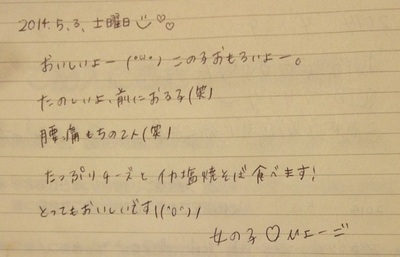 2014.5.3. 土曜日
おいしいよー (^u^) この子おもろいよー。
たのしいよ、前におる子(笑)
腰痛もちの2人(笑)
たっぷりチーズとイカ塩焼そば食べます!
とってもおいしいです!(^o^)!
女の子♡ひょーご